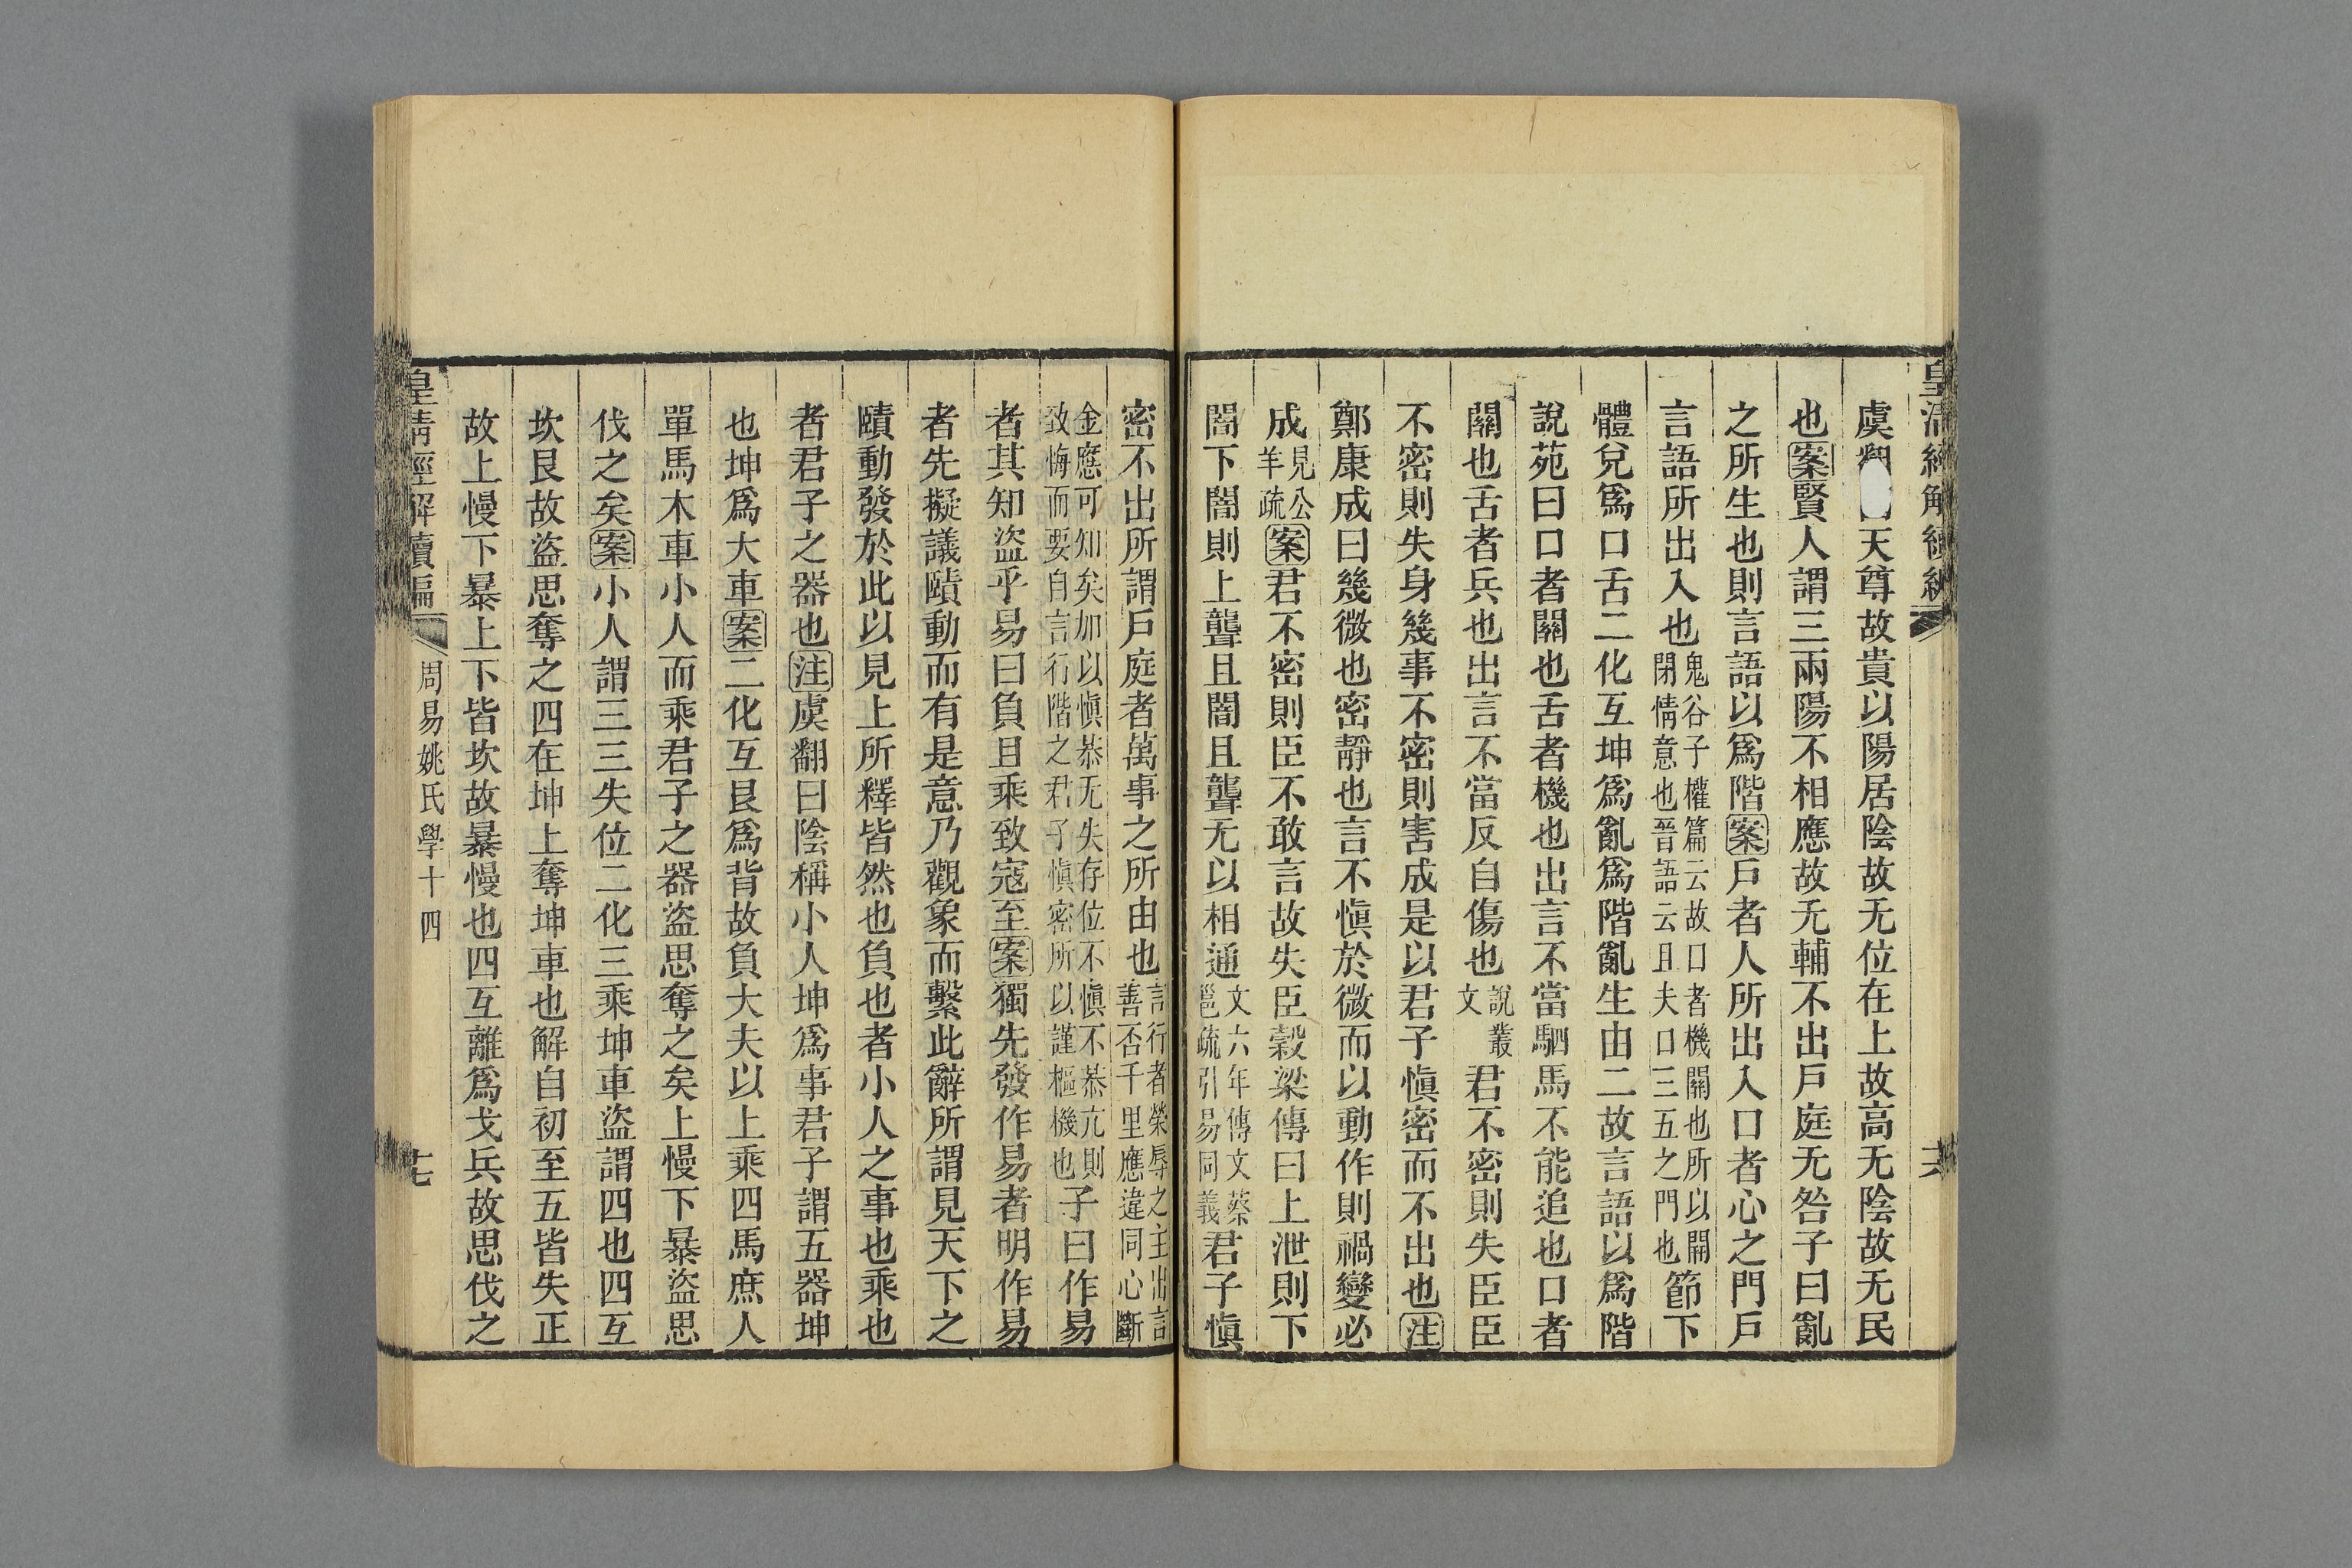 皇清經解續編
虞翻天尊故貴以陽居陰故无位在上故高无陰故无民
也案賢人謂三兩陽不相應故无輔不出戶庭无咎子曰亂
之所生也則言語以爲階案戶者人所出入口者心之門戶
言語所出入也鬼谷子權篇云故口者機關也所以開閉情意也晉語云且夫口三五之門也節下
體兌爲口舌二化互坤爲亂爲階亂生由二故言語以爲階
說苑曰口者關也舌者機也出言不當駟馬不能追也口者
關也舌者兵也出言不當反自傷也說叢文君不密則失臣臣
不密則失身幾事不密則害成是以君子愼密而不出也注
鄭康成曰幾微也密靜也言不愼於微而以動作則禍變必
成見公羊疏案君不密則臣不敢言故失臣穀梁傳曰上泄則下
闇下闇則上聾且闇且聾无以相通文六年傳文蔡邕疏引易同義君子愼
十六
密不出所謂戶庭者萬事之所由也言行者榮辱之主出言善否千里應違同心斷
金應可知矣加以愼恭无失存位不愼不恭亢則致悔而要自言行階之君子愼密所以謹樞機也子曰作易
者其知盜乎易曰負且乘致寇至案獨先發作易者明作易
者先擬議賾動而有是意乃觀象而繫此辭所謂見天下之
賾動發於此以見上所釋皆然也負也者小人之事也乘也
者君子之器也注虞翻曰陰稱小人坤爲事君子謂五器坤
也坤爲大車案二化互艮爲背故負大夫以上乘四馬庶人
單馬木車小人而乘君子之器盜思奪之矣上慢下暴盜思
伐之矣案小人謂三三失位二化三乘坤車盜謂四也四互
坎艮故盜思奪之四在坤上奪坤車也解自初至五皆失正
故上慢下暴上下皆坎故暴慢也四互離爲戈兵故思伐之
皇清經解續編
周易姚氏學十四
十七